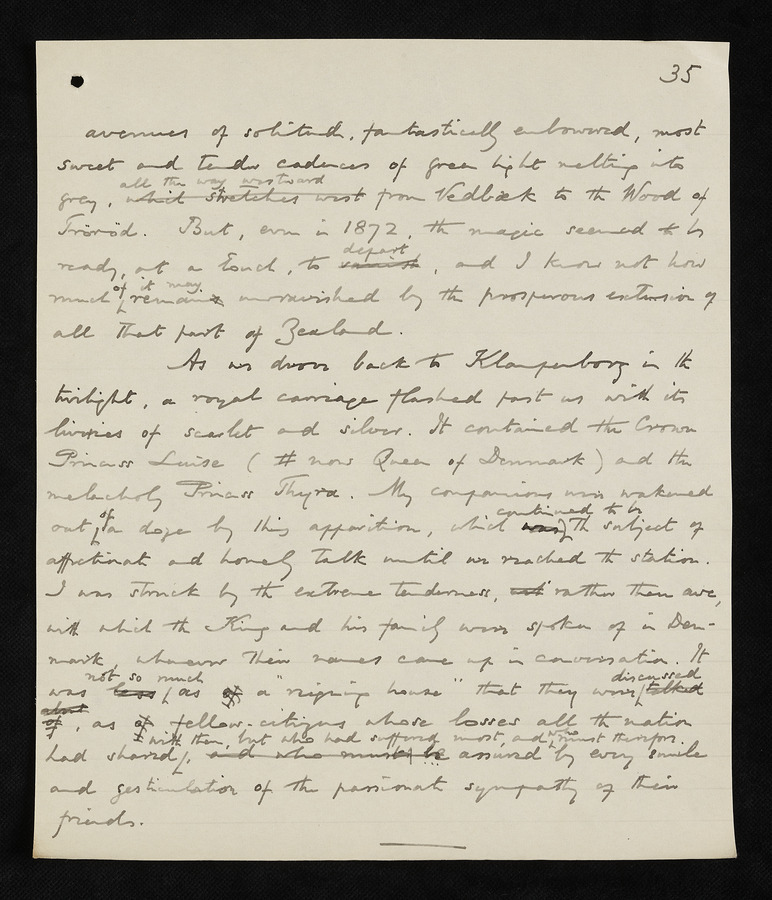 35
avenues of solitude, fantastically embowered, most
sweet and tender cadences of green light melting into
all the way westward
grey, which stretches west from Vedbæk to the Wood of
Trörød. But, even in 1872, the magic seemed to be
depart
ready, at a touch, to vanish, and I know not how
of it may
much remains unravished by the prosperous extension of
all that part of Zealand.
As we drove back to Klampenborg in the
twilight, a royal carriage flashed past us with its
liveries of scarlet and silver. It contained the Crown
Princess Luise (the now Queen of Denmark) and the
melancholy Princess Thyra. My companions were wakened
of continued to be
out a doze by this apparition, which was the subject of
affectionate and homely talk until we reached the station.
I was struck by the extreme tenderness, rather than awe,
with which the King and his family were spoken of in Den-
mark, whenever their names came up in conversation. It
not so much discussed
was less as of a "reigning house" that they were talked
about
of, as of fellow-citizens whose losses all the nation
with them, but who had suffered most, and who must therefore
had shared, and who must be assured by every smile
and gesticulation of the passionate sympathy of their
friends.